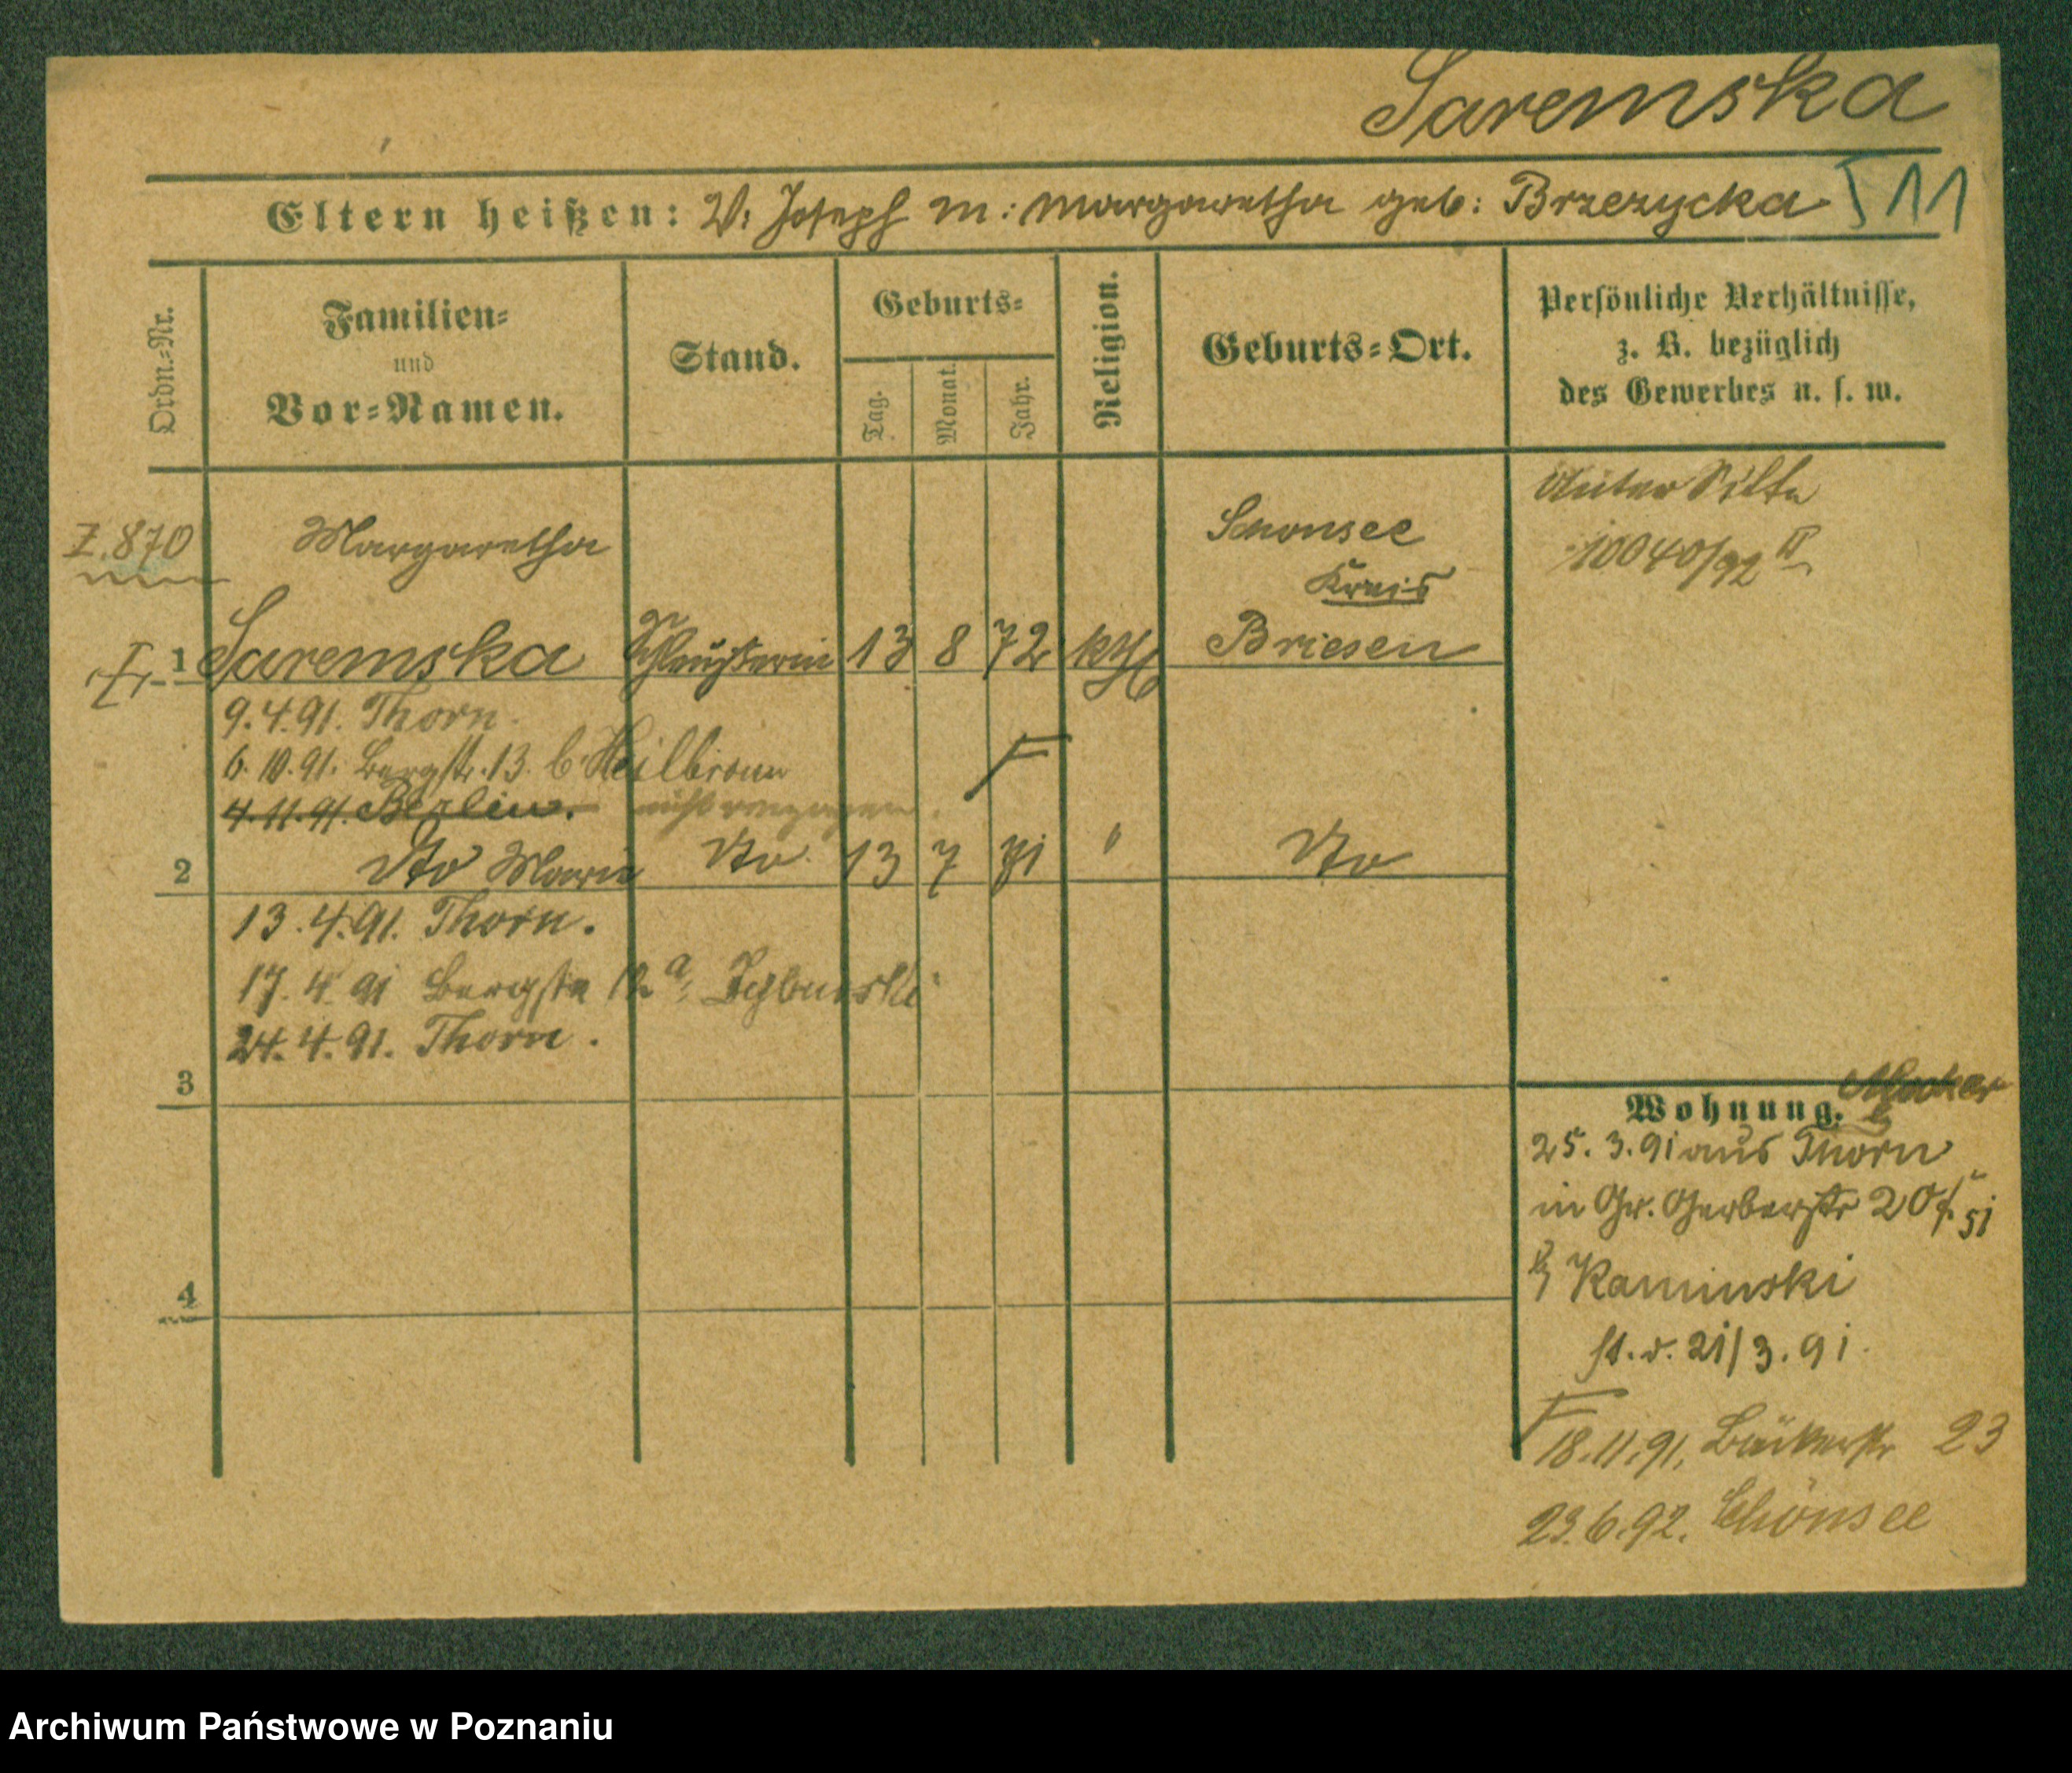 Saremska
Eltern heißen: V. Joseph M: Margaretha geb: Brzezycka
11
Ordn.-Nr.
Familien-
und
Vor-Namen.
Stand.
Geburts-
Tag.
Monat.
Jahr.
Religion.
Geburts-Ort.
Persönliche Verhältnisse,
z. B. bezüglich
des Gewerbes u. s. w.
10040/92 II
Z. 870
Margaretha
Schonsee
Kreis
1 Saremska 13 8 72 kth Briesen
9.4.91. Thorn.
6.10.91. Bergstr. 13. b. Heilbronn
4.11.91. Berlin.
2 dto Marie dto 13 7 71 " dto
13.4.91. Thorn.
17.4.91 Bergstr 12a,
24.4.91. Thorn.
3
4
Wohnung.
Mocker
25.3.91 aus Thorn
in Gr. Gerberstr 20
b/ Kaminski
st. v. 21/3.91.
18.11.91. Bäckerstr 23
23.6.92. Schönsee
Archiwum Państwowe w Poznaniu